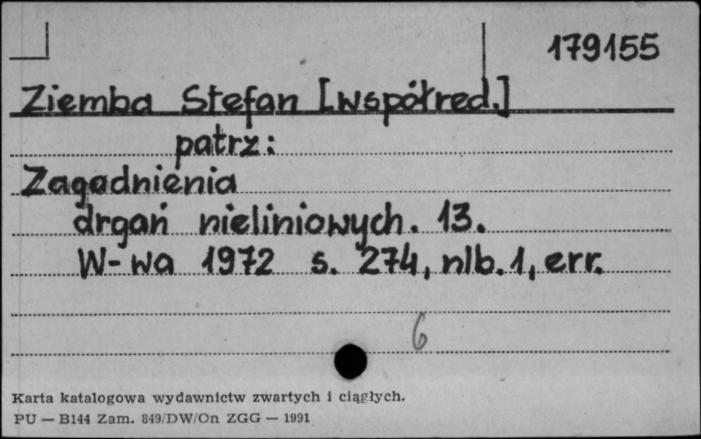 179155
Ziemba Stefan [współred.]
patrz:
Zagadnienia
drgań nieliniowych. 13.
W-wa 1972 s. 274, nlb. 1, err.
6
Karta katalogowa wydawnictw zwartych i ciągłych.
PU — B144 Zam. 849/DW/On ZGG — 1991